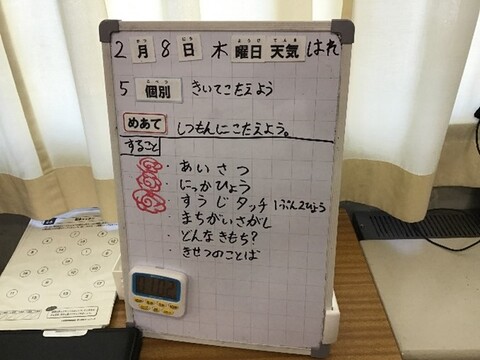 2月8日 木 曜日 天気 はれ
5 個別 きいてこたえよう
めあて しつもんにこたえよう。
すること
・あいさつ
・にっかひょう
・すうじタッチ 1ぷん2びょう
・まちがいさがし
・どんなきもち?
・きせつのことば